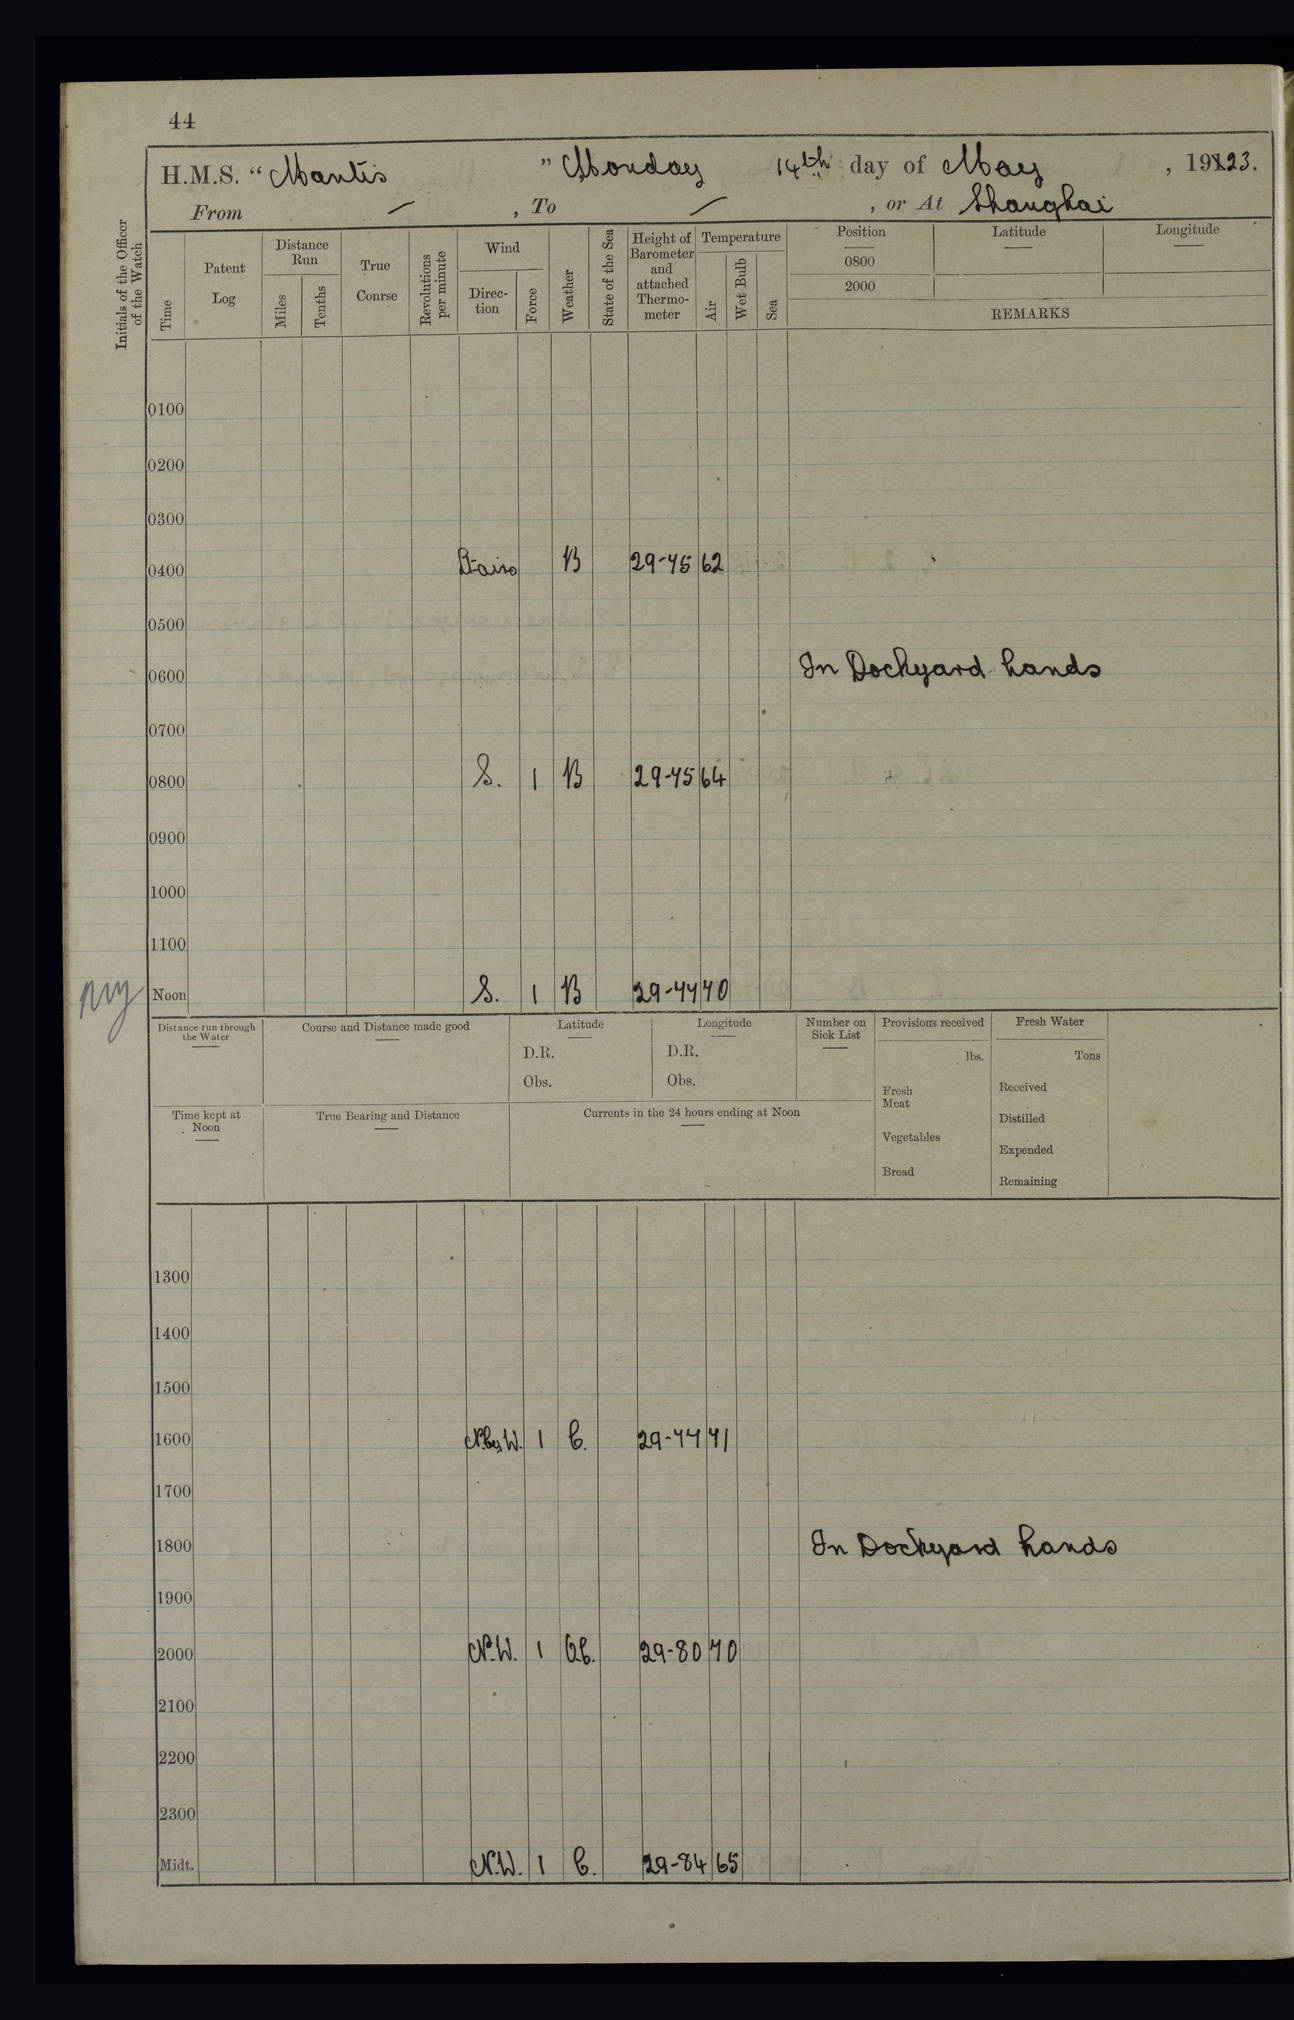 44
H.M.S. "Mantis" Monday 14th day of May, 1923.
From / , To / , or At Shanghai
Initials of the Officer of the Watch
Time
Patent Log
Distance Run
Miles
Tenths
True Conrse
Revolutions per minute
Wind
Direc-tion
Force
Weather
State of the Sea
Height of Barometer and attached Thermo-meter
Temperature
Air
Wet Bulb
Sea
Position
0800
2000
Latitude
Longitude
REMARKS
0100
0200
0300
0400 B 29-75 62
0500
0600 In Dockyard hands
0700
0800 S. 1 B 29-75 64
0900
1000
1100
Noon S. 1 B 29-77 70
Distance run through the Water
Course and Distance made good
Latitude
D.R.
Obs.
Longitude
D.R.
Obs.
Number on Sick List
Provisions received
lbs.
Fresh Meat
Vegetables
Bread
Fresh Water
Tons
Received
Distilled
Expended
Remaining
Time kept at Noon
True Bearing and Distance
Currents in the 24 hours ending at Noon
1300
1400
1500
1600 N.by W. 1 C. 29-77 71
1700
1800 In Dockyard hands
1900
2000 N.W. 1 29-80 70
2100
2200
2300
Midt. N.W. 1 C. 29-84 65